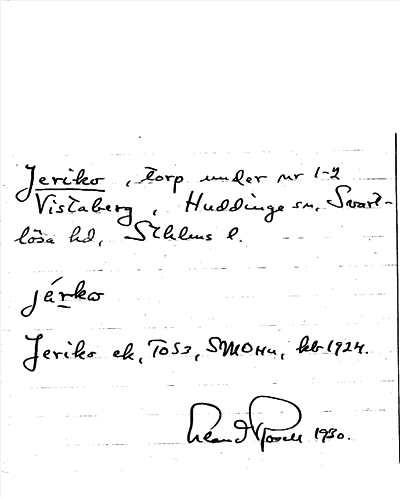 Jeriko, torp under nr 1-2
Vistaberg, Huddinge sn, Svart-
lösa hd, Sthlms l.
járko
Jeriko ek, TO53, SMOHu, kb 1924.
1930.